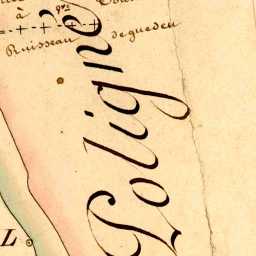 à
Ruisseau de guedeu
Loligné
L